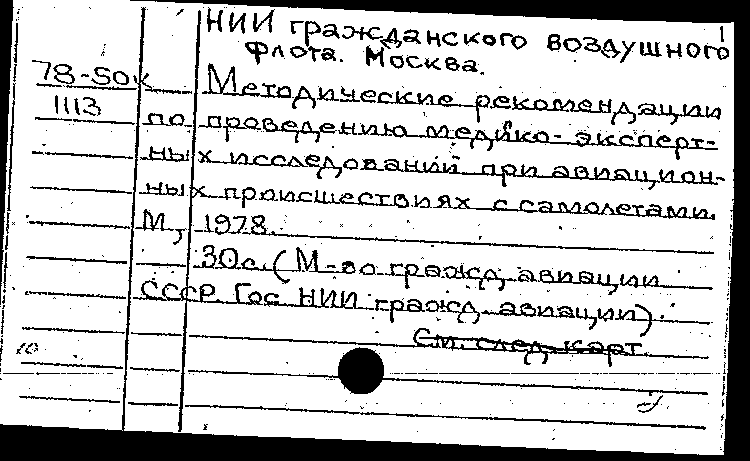 1
НИИ гражданского воздушного
флота. Москва.
78-50к Методические рекомендации
1113 по проведению медико-эксперт-
ных исследований при авиацион-
ных происшествиях с самолетами.
М., 1978.
30с. (М-во гражд. авиации
СССР. Гос НИИ гражд. авиации).
См. след. карт.
10